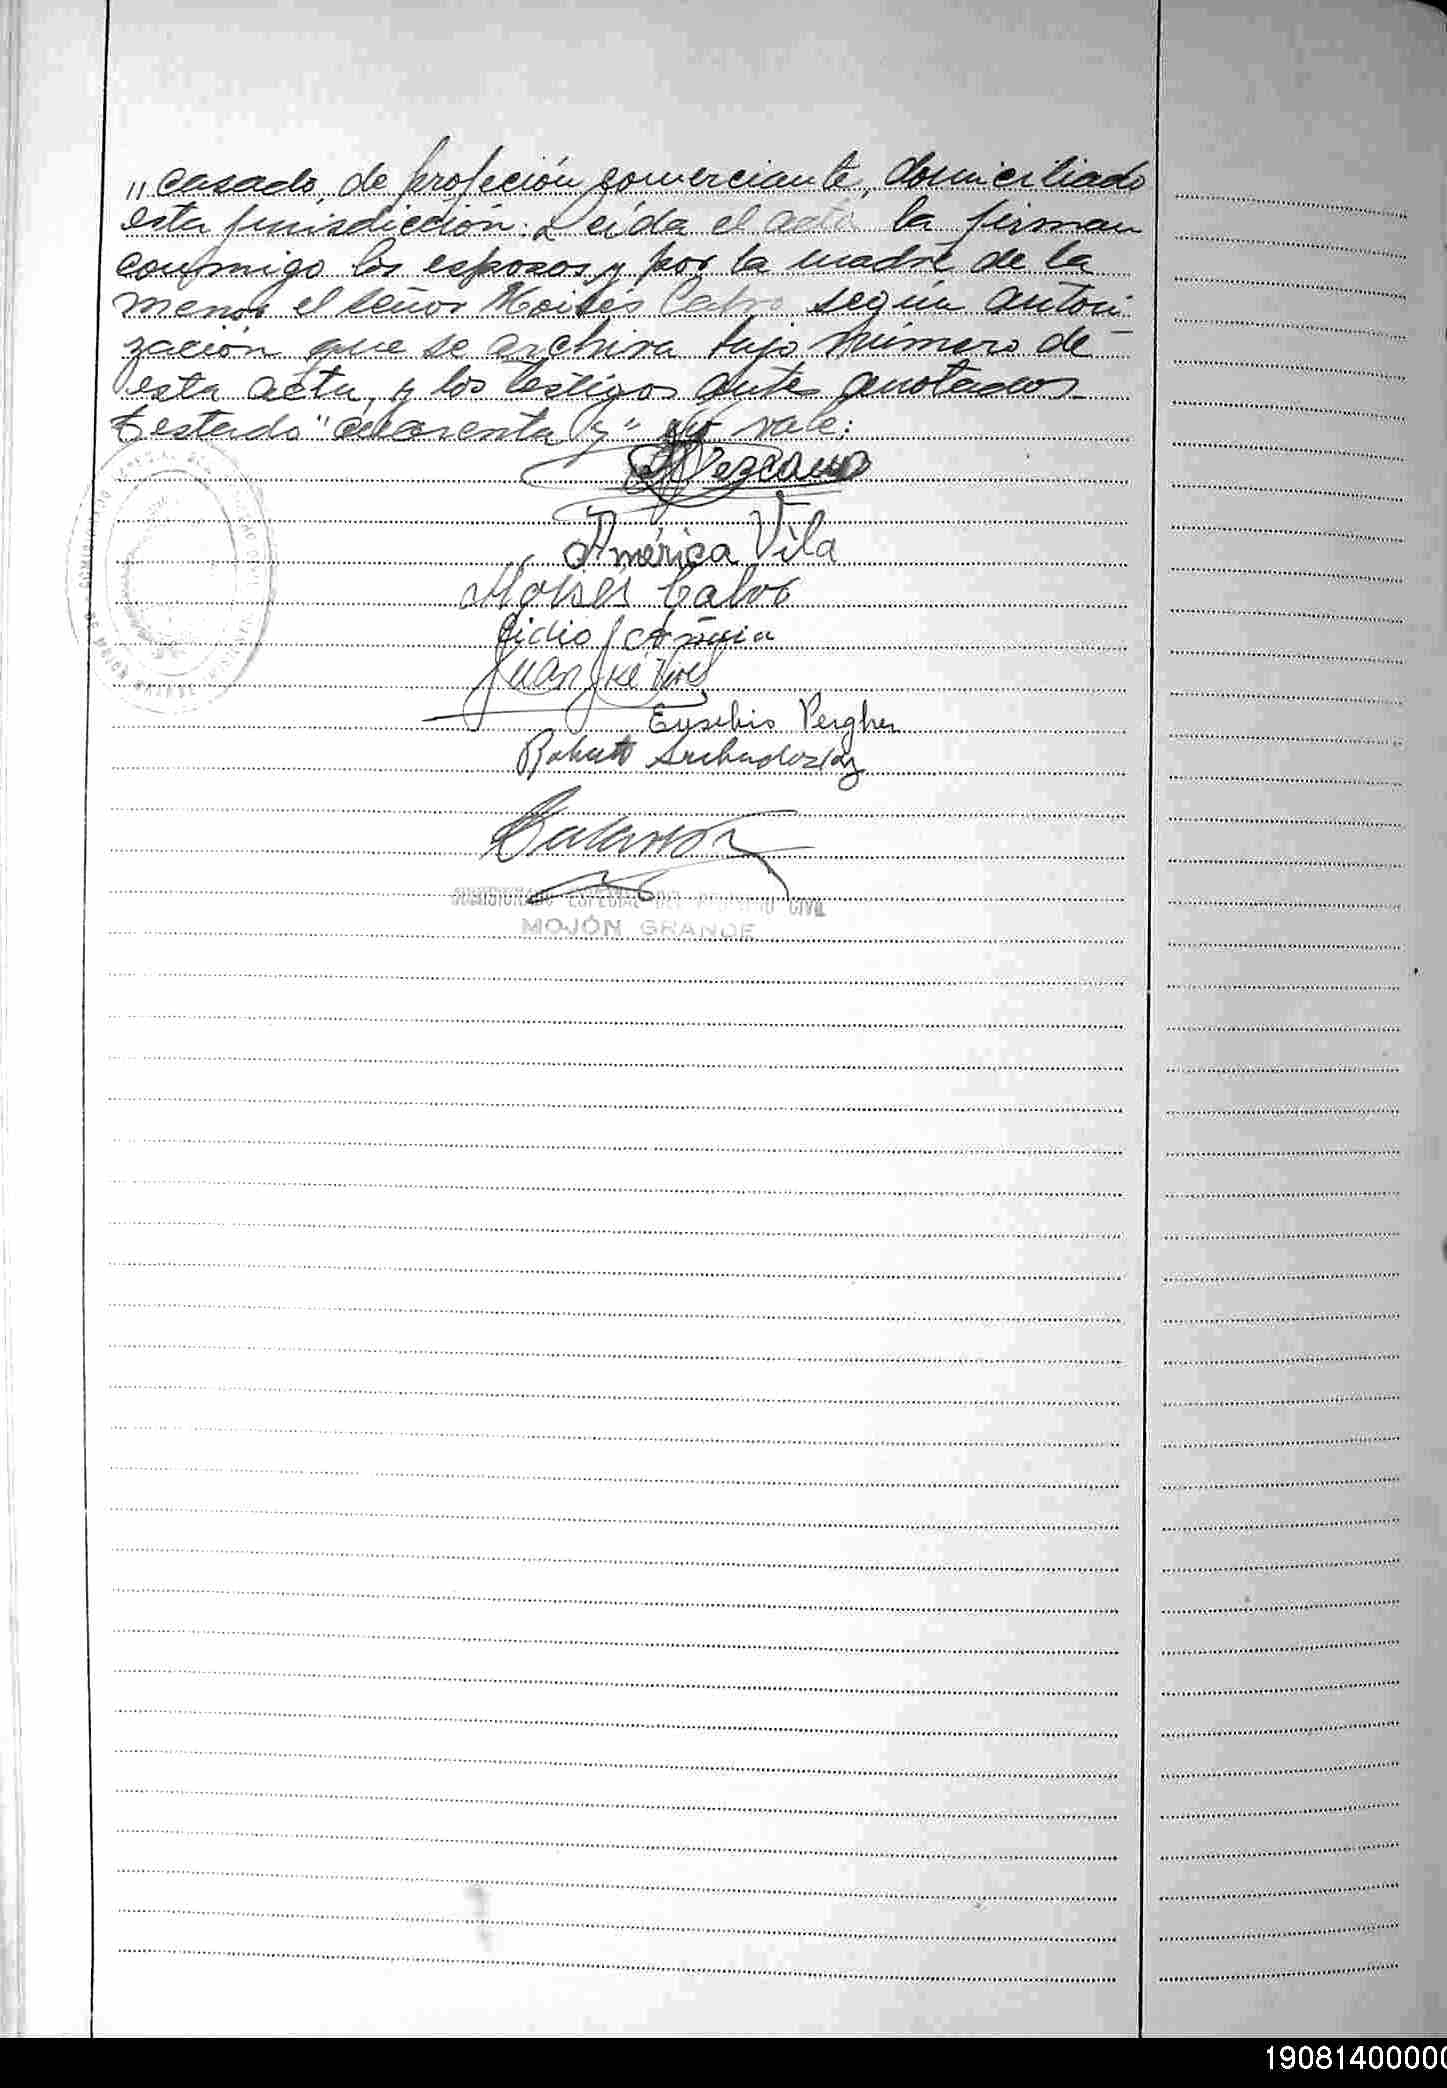 " casado, de profeción comerciante, domiciliado
esta jurisdicción. Leída el acta la firman
conmigo los esposos y por la madre de la
menor el señor Moisés Calvo según autori-
zación que se archiva bajo número de
esta acta, y los testigos antes anotados
testado "cuarenta y" no vale:
Lezcano
América Vila
Moisés Calvo
Juan José
Eusebio Pergher
Roberto
COMISIONADO ESPECIAL DEL REGISTRO CIVIL
MOJÓN GRANDE
19081400000